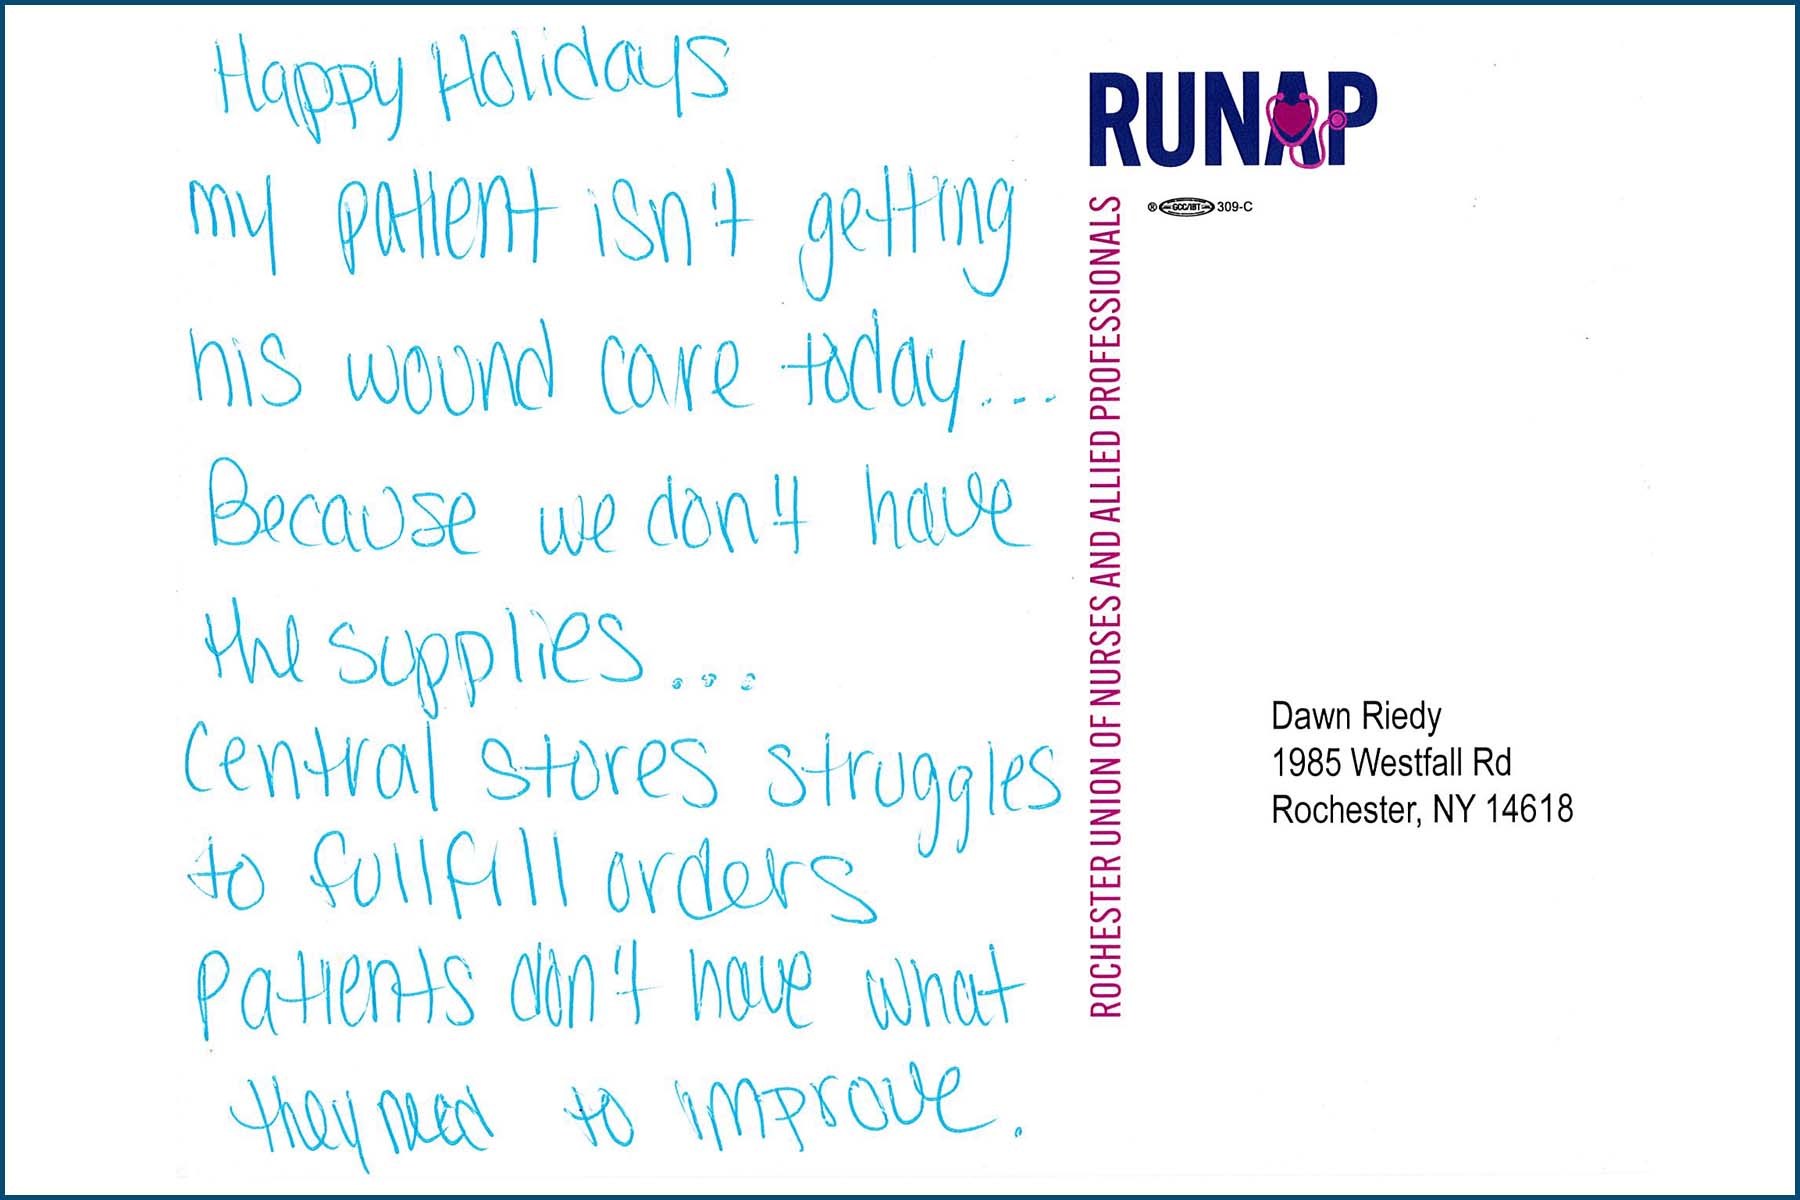 Happy Holidays
my patient isn't getting
his wound care today...
Because we don't have
the supplies...
Central stores struggles
to fullfill orders
Patients don't have what
they need to improve.
RUNAP
® GCC/IBT 309-C
ROCHESTER UNION OF NURSES AND ALLIED PROFESSIONALS
Dawn Riedy
1985 Westfall Rd
Rochester, NY 14618